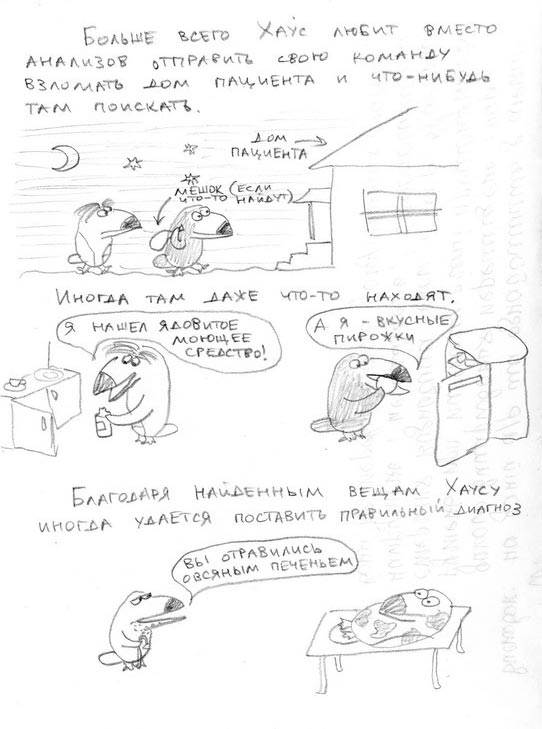 Больше всего Хаус любит вместо
анализов отправить свою команду
взломать дом пациента и что-нибудь
там поискать.
дом
пациента
мешок (если
что-то найдут)
Иногда там даже что-то находят.
Я нашел ядовитое
моющее
средство!
А я - вкусные
пирожки
Благодаря найденным вещам Хаусу
иногда удается поставить правильный диагноз
Вы отравились
овсяным печеньем